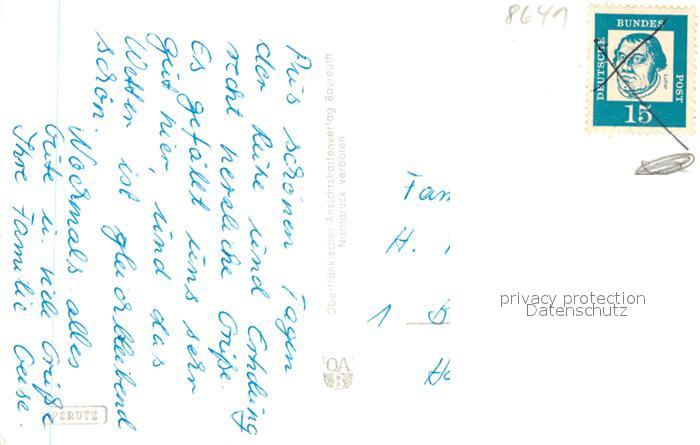 Aus schönen Tagen
der Ruhe und Erholung
recht herzliche Grüße.
Es gefällt uns sehr
gut hier, und das
Wetter ist gleichbleibend
schön.
Nochmals alles
Gute u. viele Grüße
Ihre Familie
Oberfränkischer Ansichtskartenverlag Bayreuth
Nachdruck verboten
OA
PERUTZ
8641
DEUTSCHE
BUNDES
POST
Luther
15
Fam
H.
1 B
privacy protection
Datenschutz